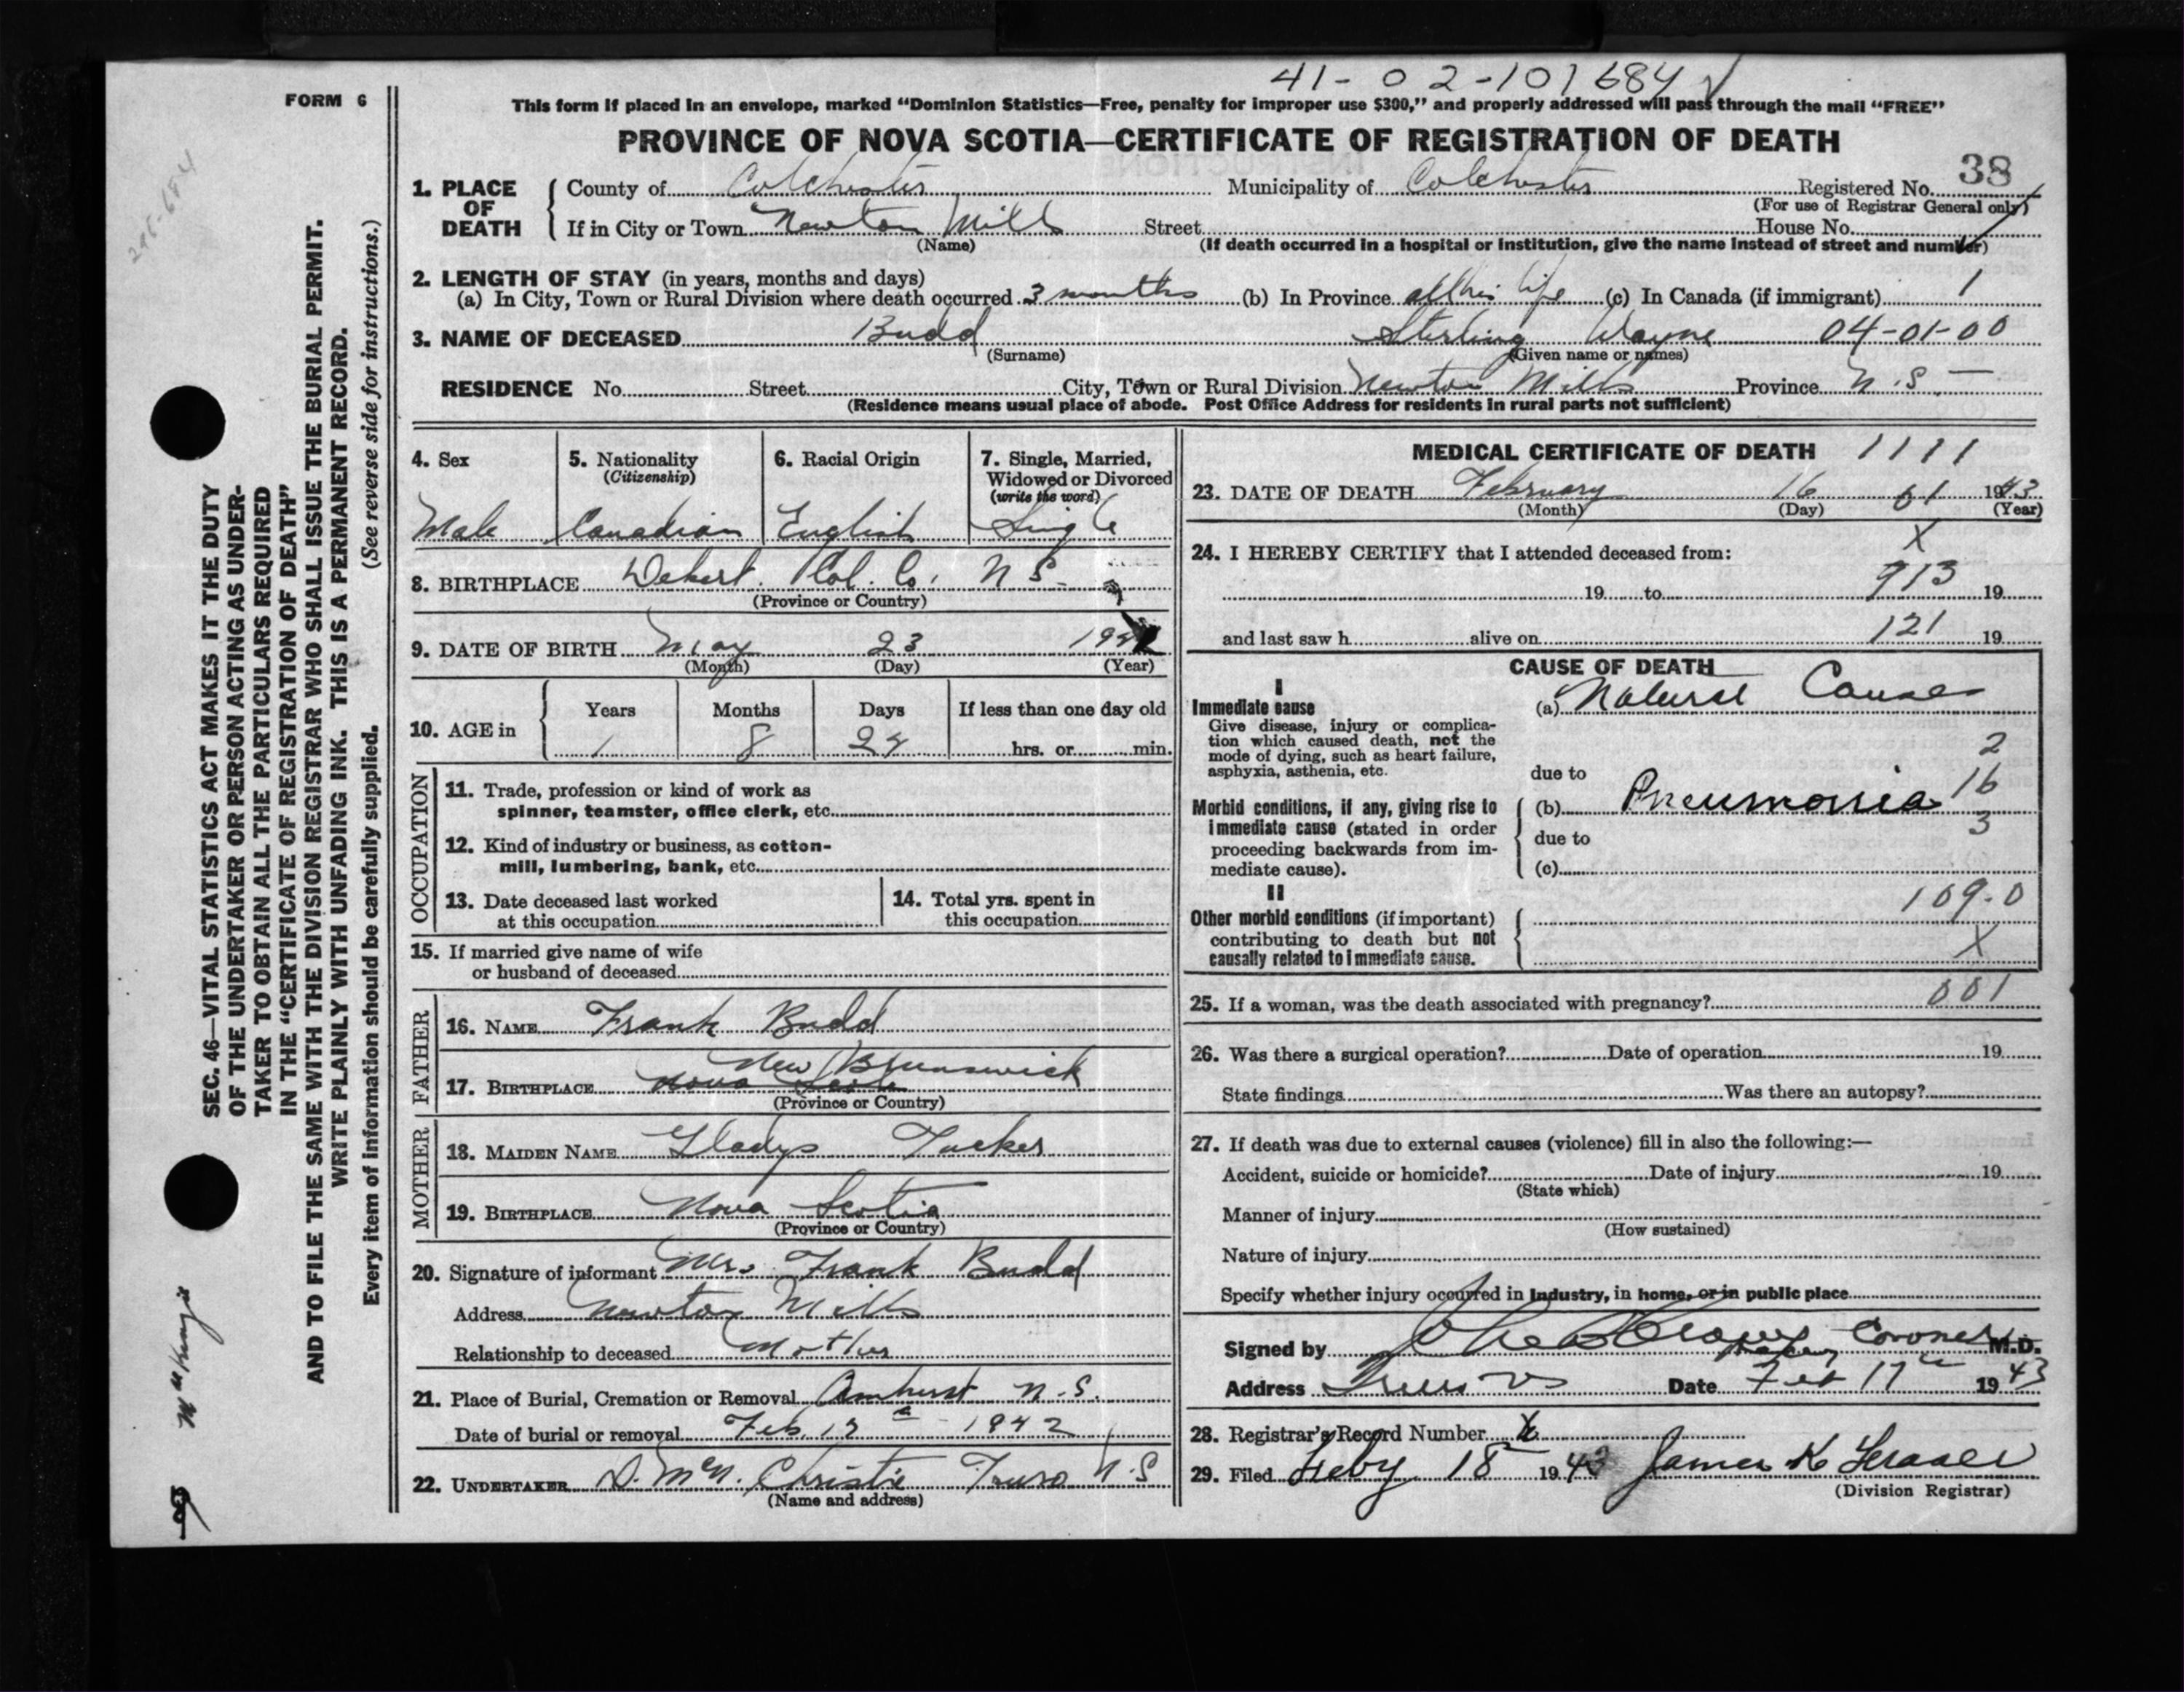 41-02-101684
FORM 6
This form if placed in an envelope, marked “Dominion Statistics—Free, penalty for improper use $300,” and properly addressed will pass through the mail “FREE”
PROVINCE OF NOVA SCOTIA—CERTIFICATE OF REGISTRATION OF DEATH
38
1. PLACE OF DEATH County of Colchester Municipality of Colchester Registered No.
(For use of Registrar General only)
If in City or Town Newton Mills Street House No.
(Name) (If death occurred in a hospital or institution, give the name instead of street and number)
2. LENGTH OF STAY (in years, months and days)
(a) In City, Town or Rural Division where death occurred 3 months (b) In Province all his life (c) In Canada (if immigrant) 1
3. NAME OF DECEASED Budd Sterling Wayne 04-01-00
(Surname) (Given name or names)
RESIDENCE No. Street City, Town or Rural Division Newton Mills Province N.S.
(Residence means usual place of abode. Post Office Address for residents in rural parts not sufficient)
4. Sex 5. Nationality 6. Racial Origin 7. Single, Married,
(Citizenship) Widowed or Divorced
(write the word)
Male Canadian English Single
8. BIRTHPLACE Debert. Col. Co. N S
(Province or Country)
9. DATE OF BIRTH May 23
(Month) (Day) (Year)
10. AGE in Years Months Days If less than one day old
1 8 24 hrs. or min.
OCCUPATION
11. Trade, profession or kind of work as
spinner, teamster, office clerk, etc.
12. Kind of industry or business, as cotton-
mill, lumbering, bank, etc.
13. Date deceased last worked 14. Total yrs. spent in
at this occupation this occupation
15. If married give name of wife
or husband of deceased
FATHER
16. NAME Frank Budd
New Brunswick
17. BIRTHPLACE Nova Scotia
(Province or Country)
MOTHER
18. MAIDEN NAME Gladys Tucker
19. BIRTHPLACE Nova Scotia
(Province or Country)
20. Signature of informant Mrs. Frank Budd
Address Newton Mills
Relationship to deceased Mother
21. Place of Burial, Cremation or Removal Amherst N.S.
Date of burial or removal Feb 1942
22. UNDERTAKER D. McN. Christie Truro N.S
(Name and address)
MEDICAL CERTIFICATE OF DEATH 1111
23. DATE OF DEATH February 16 61 1943
(Month) (Day) (Year)
X
24. I HEREBY CERTIFY that I attended deceased from:
913
19 to 19
and last saw h alive on 121 19
CAUSE OF DEATH
I
Immediate cause (a) Natural Causes
Give disease, injury or complica-
tion which caused death, not the
mode of dying, such as heart failure,
asphyxia, asthenia, etc.
2
due to 16
Morbid conditions, if any, giving rise to (b) Pneumonia
immediate cause (stated in order 3
proceeding backwards from im- due to
mediate cause). (c)
II
109-0
Other morbid conditions (if important)
contributing to death but not X
causally related to immediate cause.
25. If a woman, was the death associated with pregnancy? 001
26. Was there a surgical operation? Date of operation 19
State findings Was there an autopsy?
27. If death was due to external causes (violence) fill in also the following:—
Accident, suicide or homicide? Date of injury 19
(State which)
Manner of injury
(How sustained)
Nature of injury
Specify whether injury occurred in industry, in home, or in public place
Signed by Coroner M.D.
Address Truro Date Feb 17 1943
28. Registrar's Record Number
29. Filed Feby 18 1943 James K Fraser
(Division Registrar)
SEC. 46—VITAL STATISTICS ACT MAKES IT THE DUTY
OF THE UNDERTAKER OR PERSON ACTING AS UNDER-
TAKER TO OBTAIN ALL THE PARTICULARS REQUIRED
IN THE “CERTIFICATE OF REGISTRATION OF DEATH”
AND TO FILE THE SAME WITH THE DIVISION REGISTRAR WHO SHALL ISSUE THE BURIAL PERMIT.
WRITE PLAINLY WITH UNFADING INK. THIS IS A PERMANENT RECORD.
Every item of information should be carefully supplied. (See reverse side for instructions.)